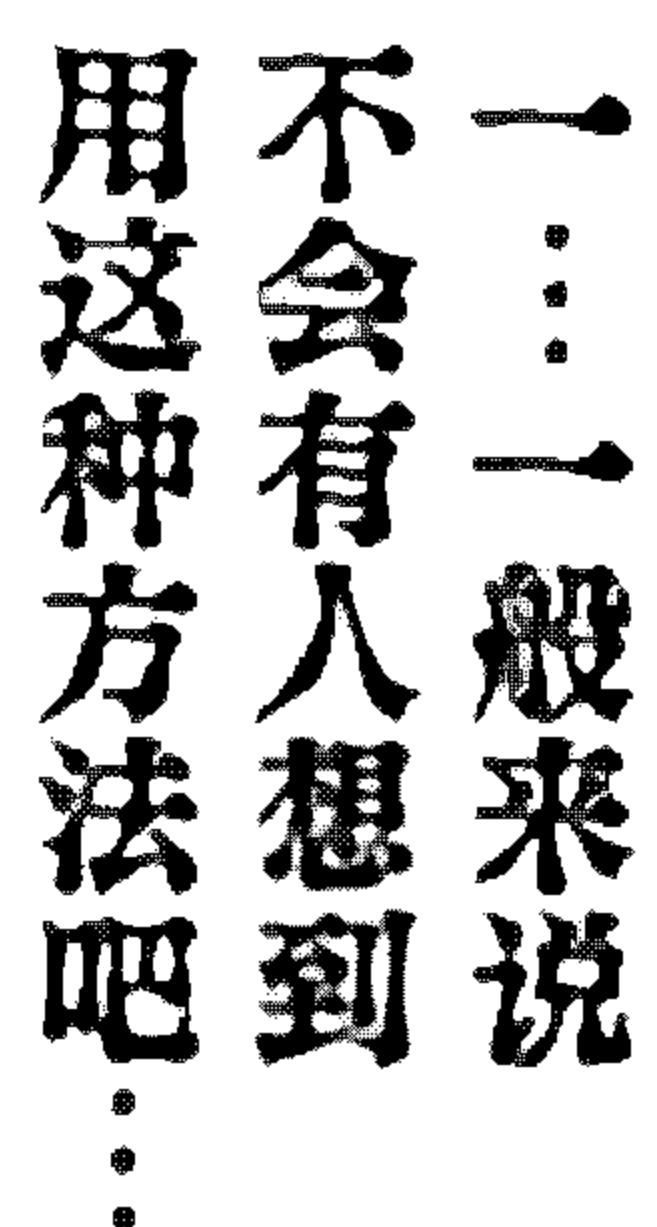 一…一般来说
不会有人想到
用这种方法吧…